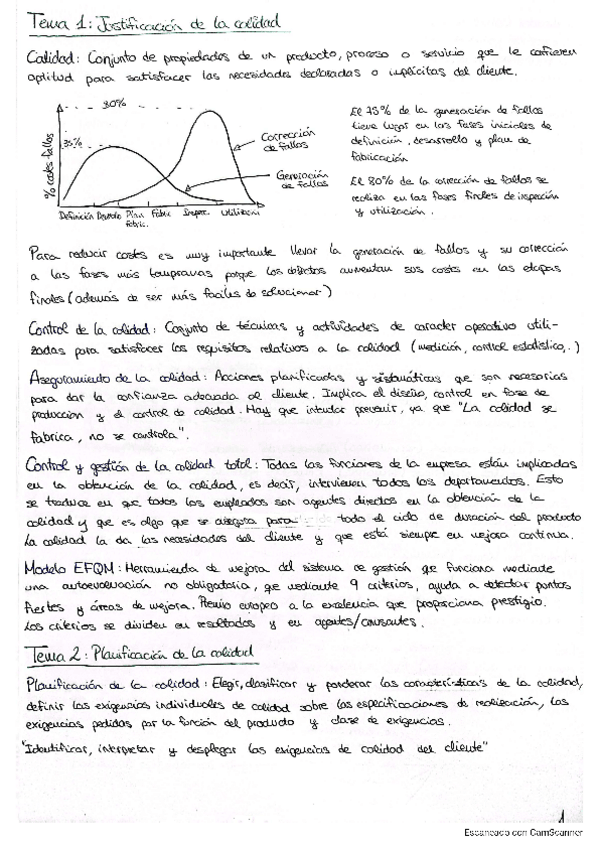 Tema 1: Justificación de la calidad
Calidad: Conjunto de propiedades de un producto, proceso o servicio que le confieren
aptitud para satisfacer las necesidades declaradas o implícitas del cliente.
80%
35%
% costes fallos
Corrección
de fallos
Generación
de fallos
Definición Desarrollo Plan Fabric. Inspec. Utilización
fabric.
El 75% de la generación de fallos
tiene lugar en las fases iniciales de
definición, desarrollo y plan de
fabricación
El 80% de la corrección de fallos se
realiza en las fases finales de inspección
y utilización.
Para reducir costes es muy importante llevar la generación de fallos y su corrección
a las fases más tempranas porque los defectos aumentan sus costes en las etapas
finales (además de ser más fáciles de solucionar)
Control de la calidad: Conjunto de técnicas y actividades de caracter operativo utili-
zadas para satisfacer los requisitos relativos a la calidad (medición, control estadístico,.)
Aseguramiento de la calidad: Acciones planificadas y sistemáticas que son necesarias
para dar la confianza adecuada al cliente. Implica el diseño, control en fase de
producción y el control de calidad. Hay que intentar prevenir, ya que "La calidad se
fabrica, no se controla".
Control y gestión de la calidad total: Todas las funciones de la empresa están implicadas
en la obtención de la calidad, es decir, intervienen todos los departamentos. Esto
se traduce en que todos los empleados son agentes directos en la obtención de la
calidad y que es algo que se asegura para todo el ciclo de duración del producto
La calidad la da las necesidades del cliente y que está siempre en mejora continua.
Modelo EFQM: Herramienta de mejora del sistema de gestión que funciona mediante
una autoevaluación no obligatoria, que mediante 9 criterios, ayuda a detectar puntos
fuertes y áreas de mejora. Premio europeo a la excelencia que proporciona prestigio.
Los criterios se dividen en resultados y en agentes/causantes.
Tema 2: Planificación de la calidad
Planificación de la calidad: Elegir, clasificar y ponderar las características de la calidad,
definir las exigencias individuales de calidad sobre las especificaciones de realización, las
exigencias pedidas por la función del producto y clase de exigencias.
"Identificar, interpretar y desplegar las exigencias de calidad del cliente"
1
Escaneado con CamScanner